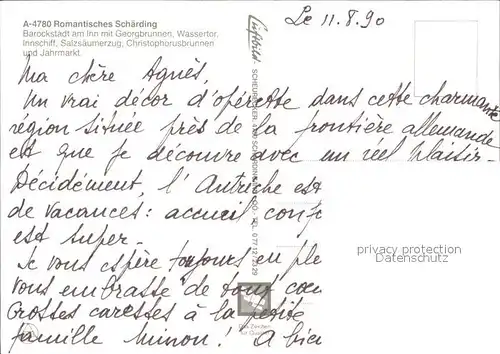 A-4780 Romantisches Schärding
Barockstädt am Inn mit Georgbrunnen, Wassertor,
Innschiff, Salzsäumerzug, Christophorusbrunnen
und Jahrmarkt
Le 11.8.90
Ma chère Agnès,
Un vrai décor d'opérette dans cette charmante
région située près de la frontière allemande
est que je découvre avec un réel plaisir.
Décidément, l'Autriche est
de vacances: accueil conf
est super.
Je vous espère toujours en ple
vous embrasse de tout coe
Grosses caresses à la petite
famille Minon! A bien
privacy protection
Datenschutz
Luftbild
Das Zeichen
für